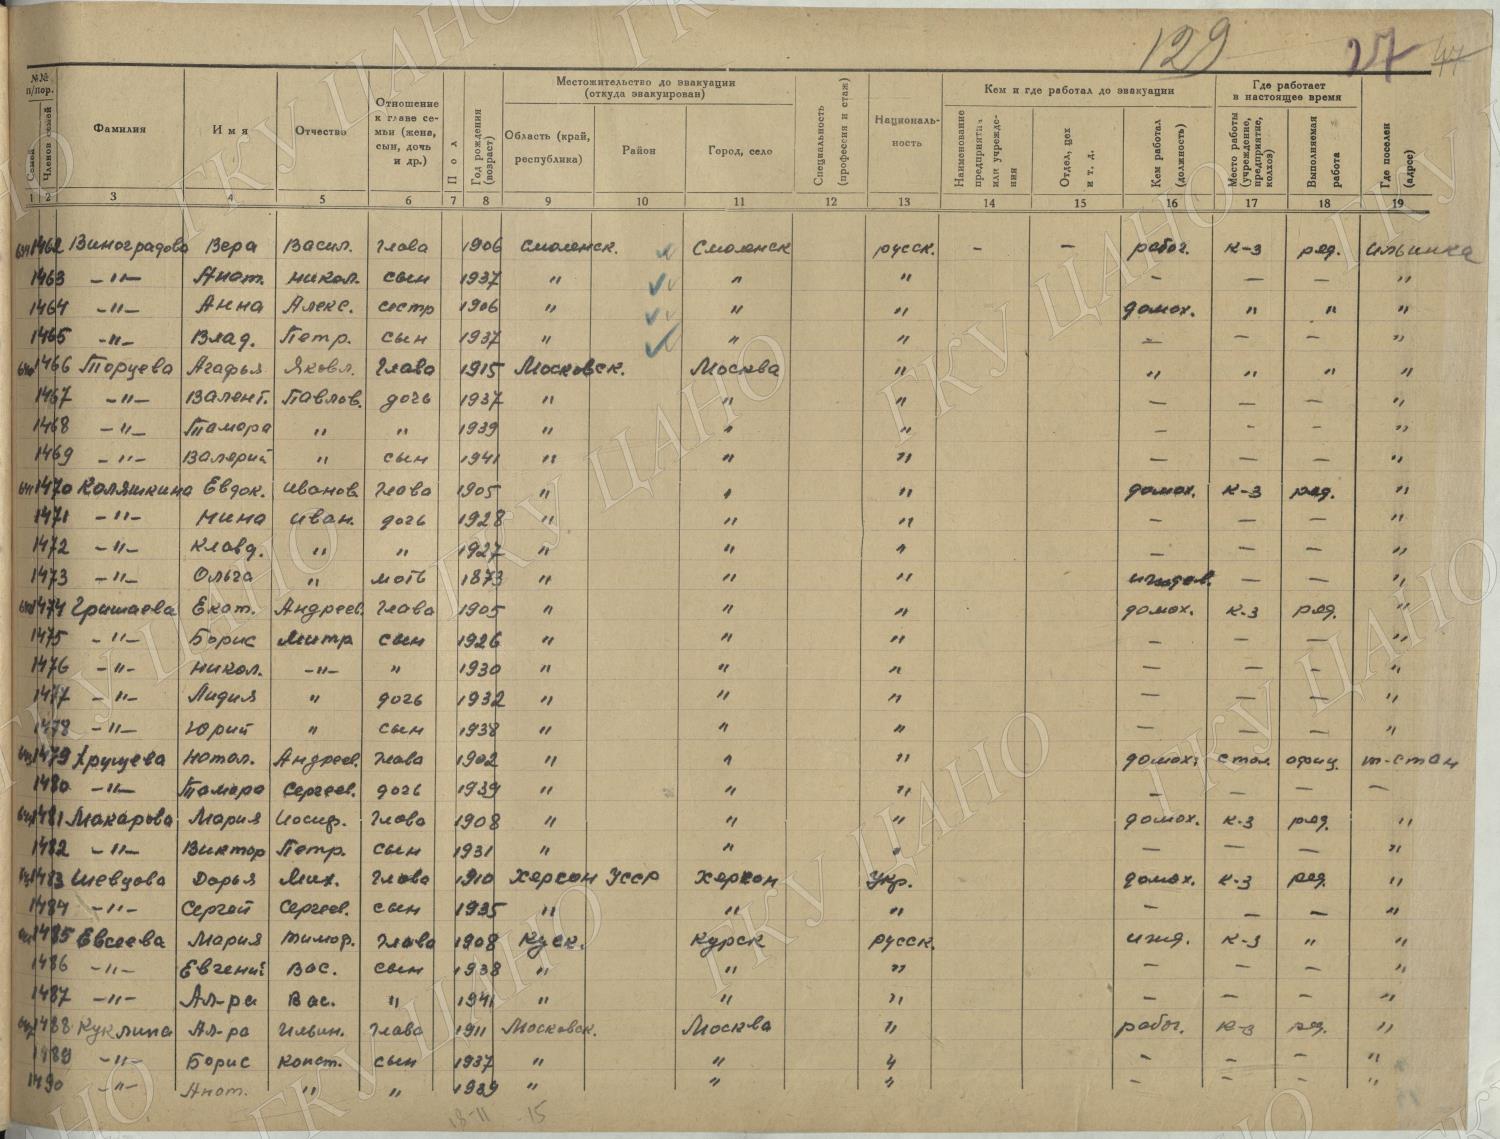 129 27 47
№№ п/пор. Местожительство до эвакуации (откуда эвакуирован) Кем и где работал до эвакуации Где работает в настоящее время
Семей Членов семей Фамилия Имя Отчество Отношение к главе семьи (жена, сын, дочь и др.) Пол Год рождения (возраст) Область (край, республика) Район Город, село Специальность (профессия и стаж) Националь-ность Наименование предприятия или учреждения Отдел, цех и т. д. Кем работал (должность) Место работы (учреждение, предприятие, колхоз) Выполняемая работа Где поселен (адрес)
1 2 3 4 5 6 7 8 9 10 11 12 13 14 15 16 17 18 19
1462 Виноградова Вера Васил. Глава 1906 Смоленск. Смоленск русск. - - рабог. к-з ряд. Ильинка
1463 -"- Анат. Никол. сын 1937 " " " - - - "
1464 -"- Анна Алекс. сестр 1906 " " " домох. " " "
1465 -"- Влад. Петр. сын 1937 " " " - - - "
1466 Торцева Агафья Яковл. Глава 1915 Московск. Москва " " " " "
1467 -"- Валент. Павлов. дочь 1937 " " " - - - "
1468 -"- Тамара " " 1939 " " " - - - "
1469 -"- Валерий " сын 1941 " " " - - - "
1470 Каляшкина Евдок. Иванов. Глава 1905 " " " домох. к-з ряд. "
1471 -"- Нина Иван. дочь 1928 " " " - - - "
1472 -"- Клавд. " " 1927 " " " - - - "
1473 -"- Ольга " мать 1873 " " " - - "
1474 Гришаева Екат. Андреев. Глава 1905 " " " домох. к-з ряд. "
1475 -"- Борис Митр сын 1926 " " " - - - "
1476 -"- Никол. -"- " 1930 " " " - - - "
1477 -"- Лидия " дочь 1932 " " " - - - "
1478 -"- Юрий " сын 1938 " " " - - - "
1479 Хрущева Натал. Андреев. Глава 1902 " " " домох. стол. офиц. т-стан
1480 -"- Тамара Сергеев. дочь 1939 " " " - - - -
1481 Макарова Мария Иосиф. Глава 1908 " " " домох. к-з ряд. "
1482 -"- Виктор Петр. сын 1931 " " " - - - "
1483 Шевцова Дарья Мих. Глава 1910 Херсон Усср Херсон Укр. домох. к-з ряд. "
1484 -"- Сергей Сергеев. сын 1935 " " " - - - "
1485 Евсеева Мария Тимоф. Глава 1908 Куск. Курск русск. ижд. к-з " "
1486 -"- Евгений Вас. сын 1938 " " " - - - "
1487 -"- Ал-ра Вас. " 1941 " " " - - - "
1488 Куклина Ал-ра Ильин. Глава 1911 Московск. Москва " рабог. к-з ряд. "
1489 -"- Борис Конст. сын 1937 " " " - - - "
1490 -"- Анат. " " 1939 " " " - - - "
18-11 -15